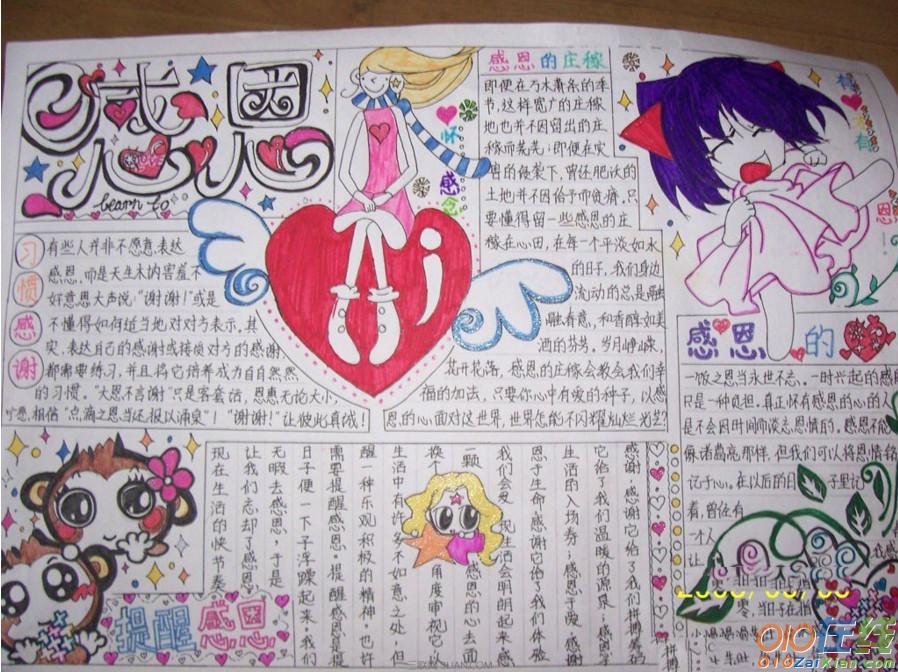 感恩
learn to
习惯感谢
有些人并非不愿意表达
感恩,而是天生木讷害羞不
好意思大声说:“谢谢!”或是
不懂得如何适当地对对方表示,其
实,表达自己的感谢或接质对方的感谢,
都需要练习,并且将它培养成为自自然然
的习惯。“大恩不言谢”只是客套话,恩惠无论大小,
相信“点滴之恩当还报以涌泉”!“谢谢!”让彼此真诚!
怀感
i
感恩的庄稼
即便在万木萧条的季
节,这样宽广的庄稼
地也并不因留出的庄
稼而荒芜;即便在灾
害的侵袭下,曾经肥沃的
土地并不因给予而贫瘠,只
要懂得留一些感恩的庄
稼在心田,在每一个平淡如水
的日子,我们身边
流动的总是融
融春意,和香醇如美
酒的芬芳。岁月峥嵘,
花开花落,感恩的庄稼会教会我们幸
福的加法,只要你心中有爱的种子,以感
恩的心面对这世界,世界怎能不闪耀灿烂光芒?
感恩的
一饭之恩当永世不忘。一时兴起的感
只是一种负担。真正怀有感恩的心的人
是不会因时间而淡忘恩情的。感恩不能
像诸葛亮那样,但我们可以将恩情铭
记于心,在以后的日子里记
着,曾经有
一才人
让
感谢,感谢它给了我们拼搏的
它给了我们温暖的源泉,感恩
生活的入场券;感恩于爱,感谢
恩于生命,感谢它给了我们体验
我们会发现,生活会明朗起来。感
一颗感恩的心去面
换个角度审视它,
生活中有许多不如意之处,但
醒一种乐观积极的精神。也许
需要提醒感恩,提醒感恩是提
日子便一下子浮躁起来,我们
无暇去感恩,于是,
让我们忘却了感恩,
现在生活的快节奏
提醒感恩
010在线
010zaixian.com